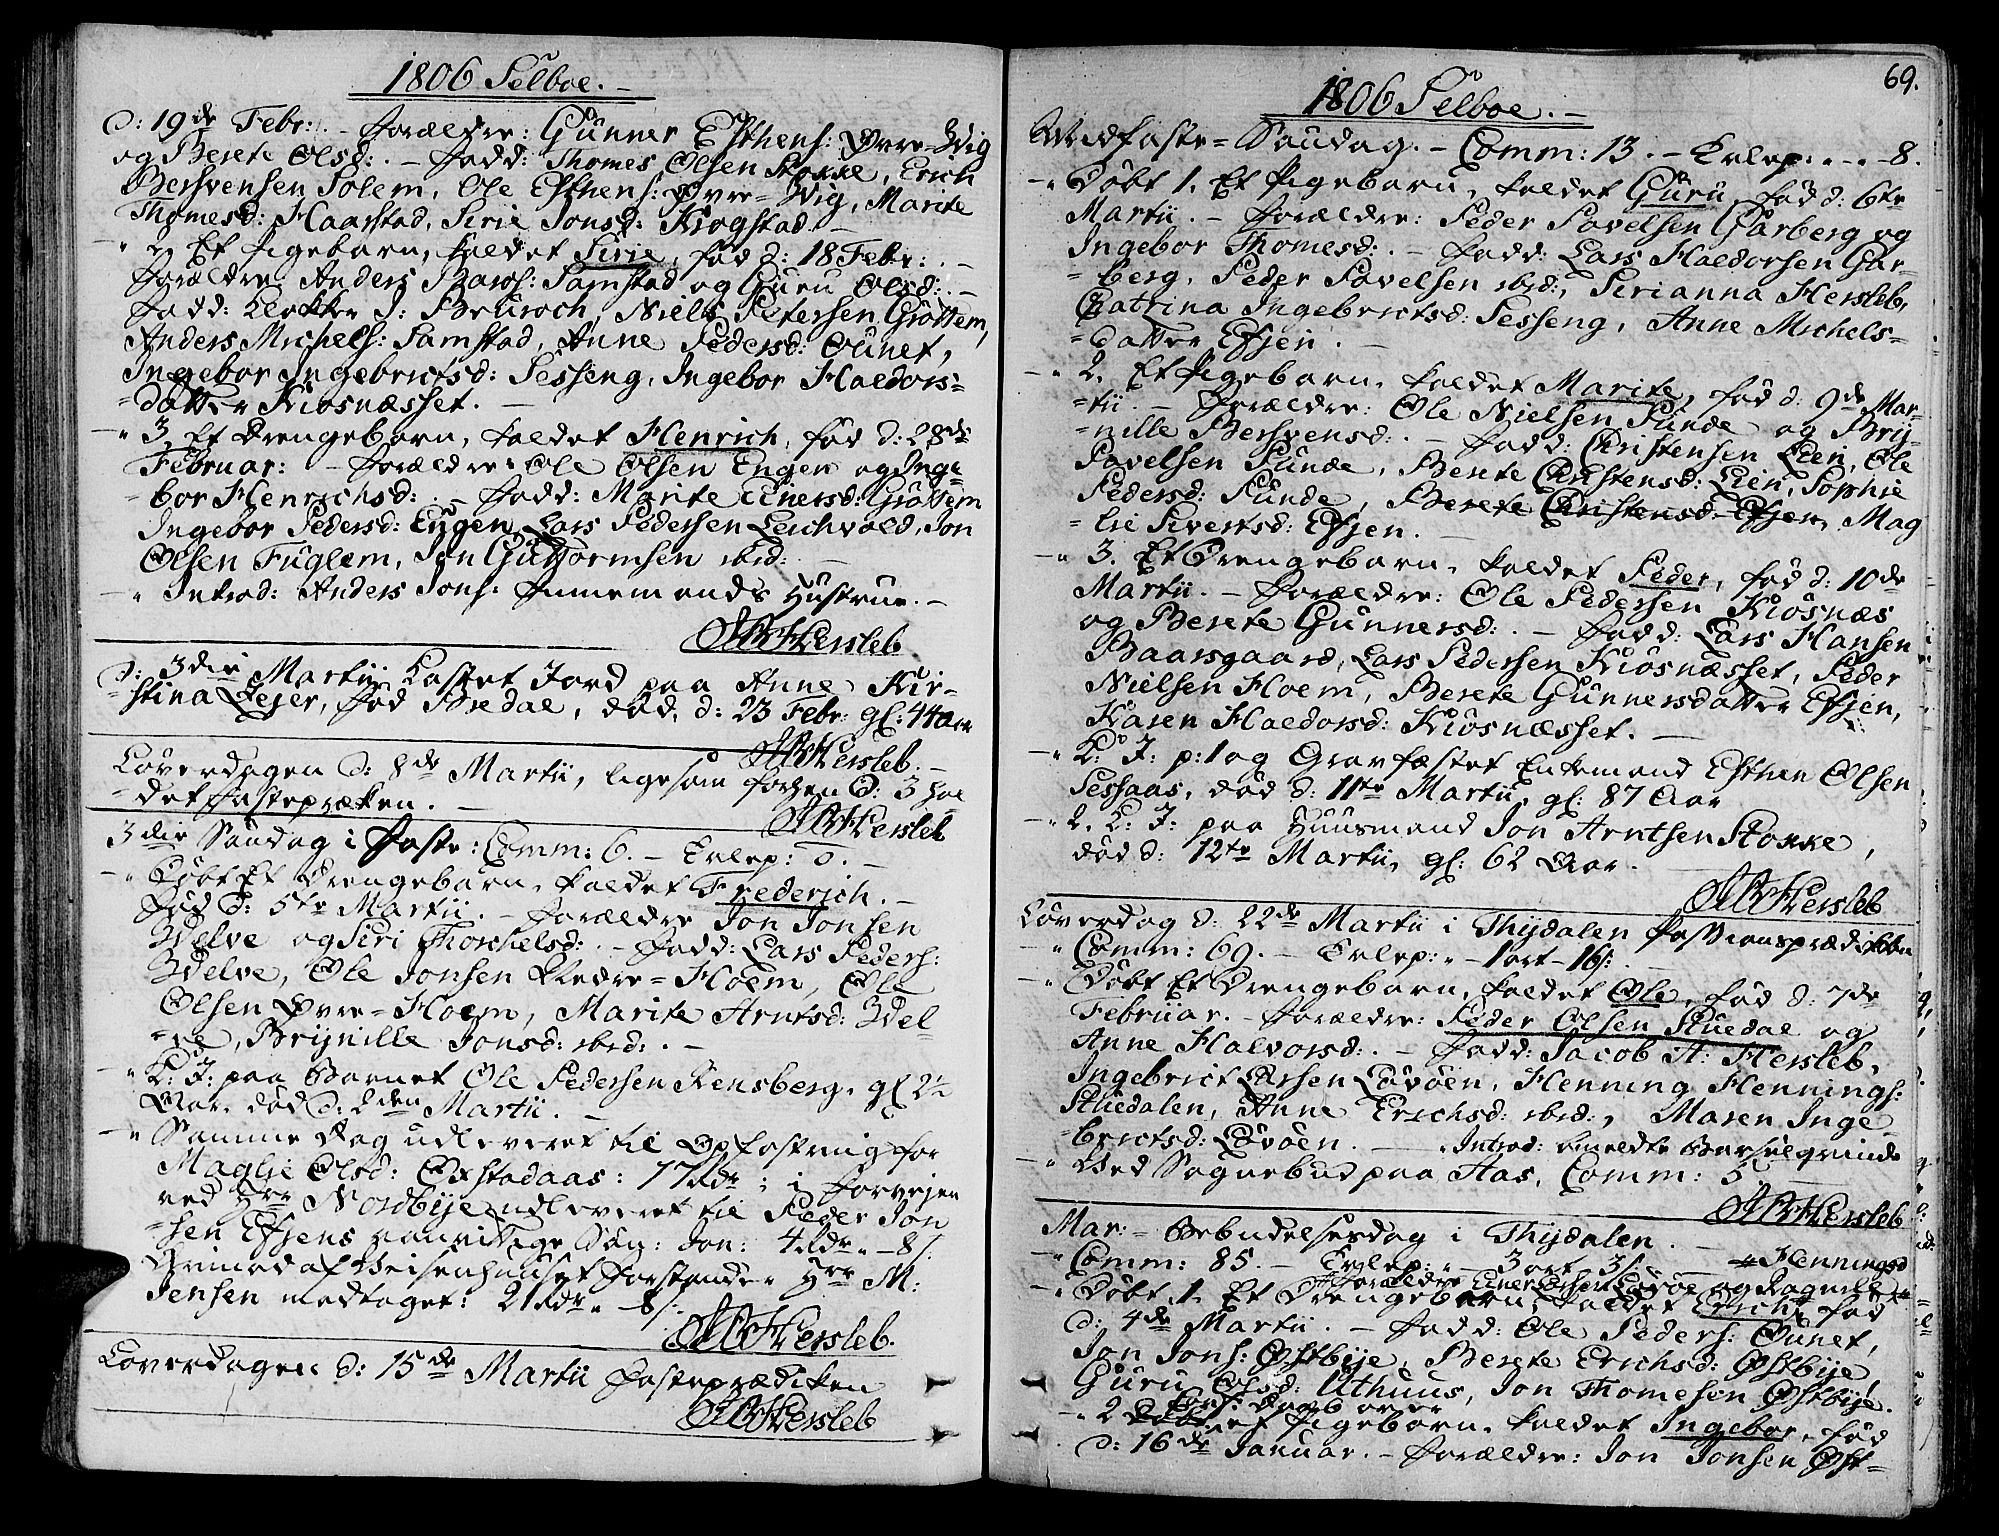 1806 Selboe.
d: 19de Febr: - Forældre: Gunner Esthens: Øvre=Wig
og Berete Olsd: . - Fadd: Thomes Olsen Stokke, Erich
Bersvensen Solem, Ole Esthens: Øvre=Wig, Marite
Thomesd: Haarstad, Sirie Jonsd: Krogstad. -
-" 2, Et Pigebarn, kaldet Sirie, fød d: 18 Febr: . -
Forældre: Anders Baros: Samstad og Guru Olsd: . -
Fadd: Klokker J: Beuroch, Niels Petersen Grøttem,
Anders Michels: Samstad, Anne Pedersd: Ounet,
Ingebor Ingebrictsd: Sesseng, Ingebor Haldors=
=datter Kiøsnæsset. -
-" 3, Et Drengebarn, kaldet Henrich, fød d: 28de
Februar: - Forældre: Ole Olsen Engen og Inge
=bor Henrichsd: . - Fadd: Marite Einersd: Grøttem
Ingebor Pedersd: Engen, Lars Pedersen Leichvold, Jon
Olsen Fuglem, Jon Guttormsen ibid: -
-" Introd: Anders Jons: Hustrue. -
Hersleb
d: 3die Martii Kastet Jord paa Anne Kir=
=stina Lejer, fød Bredal, død, d: 23 Febr: gl: 44 Aar
Hersleb.
Løverdagen d: 8de Martii, ligesom forhen d: 3
det Fastepræken. -
Hersleb
3die Søndag i Faste: Comm: 6. - Erlep: 0. -
-" Døbt Et Drengebarn, kaldet Frederich. -
Fød d: 5te Martii. - Forældre Jon Jonsen
Welve og Siri Thorkelsd: . - Fadd: Lars Peders:
Welve, Ole Jonsen Nedre=Hoem, Ole
Olsen Øvre=Hoem, Marite Arntsd: Wel=
=ve, Brynille Jonsd: ibid: . -
-" K: J: paa Barnet Ole Pedersen Rensberg, gl 2½
Aar, død d: 2den Martii. -
-" Samme Dag udleveret til Opfostring for
Maglie Olsd: Oxstadaas: 17 Rdr: i Forvejen
ved Hrr Nordbye udleveret til Peder Jon
=sen Efsens vanvittige Søn: Jon: 4 Rdr " -8/:
Grimod af Weisenhuuset Forstander Hrr M:
Jensen modtaget: 21 Rdr " -8/:
Hersleb.
Løverdagen d: 15de Martii Fasteprædiken
Hersleb
69.
1806 Selboe. -
Midfaste=Søndag. - Comm: 13. - Erlep: " - -8.
-" Døbt 1. Et Pigebarn, kaldet Guru, fød d: 6te
Martii. - Forældre: Peder Povelsen Garberg og
Ingebor Thomesd: . - Fadd: Lars Haldorsen Gar=
=berg, Peder Povelsen ibid:, Sirianna Hersleb,
Catrina Ingebrictsd: Sesseng, Anne Michels=
=datter Efsen. -
-" 2. Et Pigebarn, kaldet Marite, fød d: 9de Mar=
=tii. - Forældre: Ole Nielsen Sunde og Bry=
=nille Bersvensd: . - Fadd: Christensen Lien, Ole
Povelsen Sunde, Berete Christensd: Lien, Sophie
Pedersd: Sunde, Berete Christensd: Efsen, Mag
=lie Sivertsd: Efsen. -
-" 3. Et Drengebarn, kaldet Peder, fød d: 10de
Martii. - Forældre: Ole Pedersen Kiøsnæs
og Berete Gunnersd: . - Fadd: Lars Hansen
Baarsgaard, Lars Pedersen Kiøsnæsset, Peder
Nielsen Hoem, Berete Gunnersdatter Efsen,
Karen Haldorsd: Kiøsnæsset. -
-" K: J: p: 1 og Gravfæstet Enkemand Esthen Olsen
Sessaas, død d: 11te Martii, gl: 87 Aar
-" 2. K: J: paa Huusmand Jon Arntsen Stokke,
død d: 12te Martii, gl: 62 Aar. -
Hersleb
Løverdag d: 22de Martii i Thydalen Passionsprædiken
-" Comm: 69. - Erlep: " -1 ort - 16/: -
-" Døbt Et Drengebarn, kaldet Ole, fød d: 7de
Februar. - Forældre: Peder Olsen Stuedal og
Anne Halvorsd: . - Fadd: Jacob H: Hersleb,
Ingebrict Larsen Løvøen, Henning Hennings:
Stuedalen, Anne Erichsd: ibid:, Maren Inge=
=brictsd: Løvøen. - Introd: bemeldte Barselqvinde
-" Ved Sognebud paa Aas, Comm: 5 -
Hersleb
Mar: Bebudelsesdag i Thydalen. -
-" Comm: 85. - Erlep: " - 3 ort 3/: - Henningsd
Forældre Einer Larsen Løvøe og Ragnille
-" Døbt 1. Et Drengebarn, kaldet Erich, fød
d: 4de Martii. - Fadd: Ole Peders: Ounet,
Jon Jons: Østbye, Berete Erichsd: Østbye,
Guru Olsd: Uthuus, Jon Thomesen Østbye.
-" 2 Et Pigebarn, kaldet Ingebor, fød
d: 16de Januar. - Forældre: Jon Jonsen Øst=